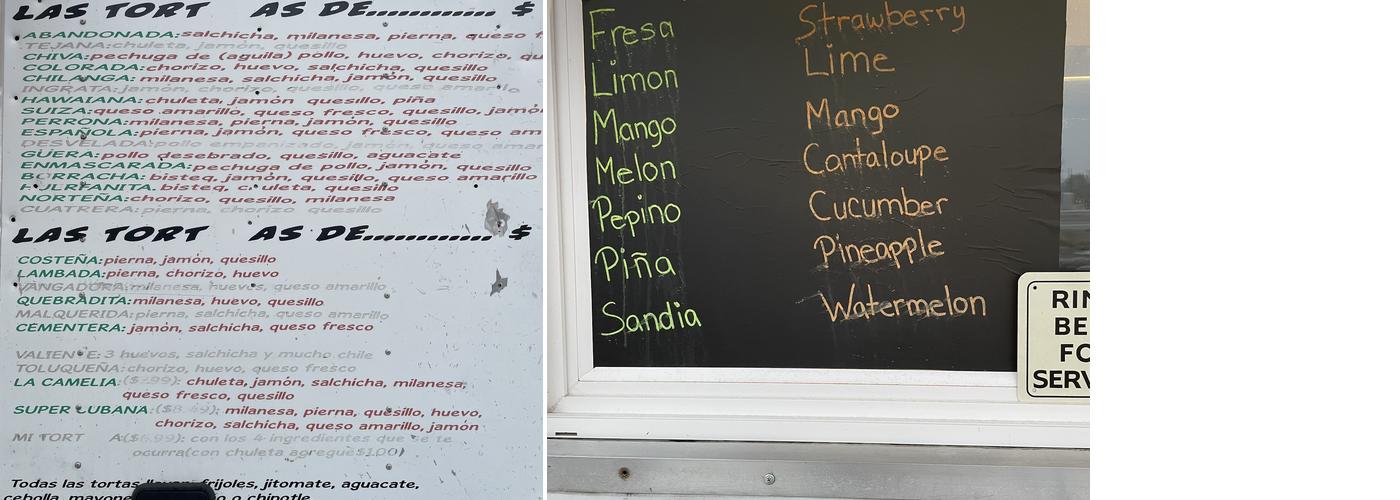 LAS TORT AS DE............ $
ABANDONADA: salchicha, milanesa, pierna, queso f
TEJANA: chuleta, jamón, quesillo
CHIVA: pechuga de (aguila) pollo, huevo, chorizo, qu
COLORADA: chorizo, huevo, salchicha, quesillo
CHILANGA: milanesa, salchicha, jamón, quesillo
INGRATA: jamón, chorizo, quesillo, queso amarillo
HAWAIANA: chuleta, jamón quesillo, piña
SUIZA: queso amarillo, queso fresco, quesillo, jamón
PERRONA: milanesa, pierna, jamón, quesillo
ESPAÑOLA: pierna, jamón, queso fresco, queso am
DESVELADA: pollo empanizado, jamón, queso amar
GÜERA: pollo desebrado, quesillo, aguacate
ENMASCARADA: pechuga de pollo, jamón, quesillo
BORRACHA: bisteq, jamón, quesillo, queso amarillo
bisteq, c uleta, quesillo
NORTEÑA: chorizo, quesillo, milanesa
CUATRERA: pierna, chorizo quesillo
LAS TORT AS DE............ $
COSTEÑA: pierna, jamón, quesillo
LAMBADA: pierna, chorizo, huevo
VANGADORA: milanesa, huevos, queso amarillo
QUEBRADITA: milanesa, huevo, quesillo
MALQUERIDA: pierna, salchicha, queso amarillo
CEMENTERA: jamón, salchicha, queso fresco
VALIEN E: 3 huevos, salchicha y mucho chile
TOLUQUEÑA: chorizo, huevo, queso fresco
LA CAMELIA: chuleta, jamón, salchicha, milanesa,
queso fresco, quesillo
SUPER CUBANA: milanesa, pierna, quesillo, huevo,
chorizo, salchicha, queso amarillo, jamón
MI TORT A($6.99): con los 4 ingredientes que se te
ocurra(con chuleta agregue$1.00)
Todas las tortas llevan frijoles, jitomate, aguacate,
cebolla, o chipotle
Fresa Strawberry
Limon Lime
Mango Mango
Melon Cantaloupe
Pepino Cucumber
Piña Pineapple
Sandia Watermelon
RIN
BE
FO
SERV